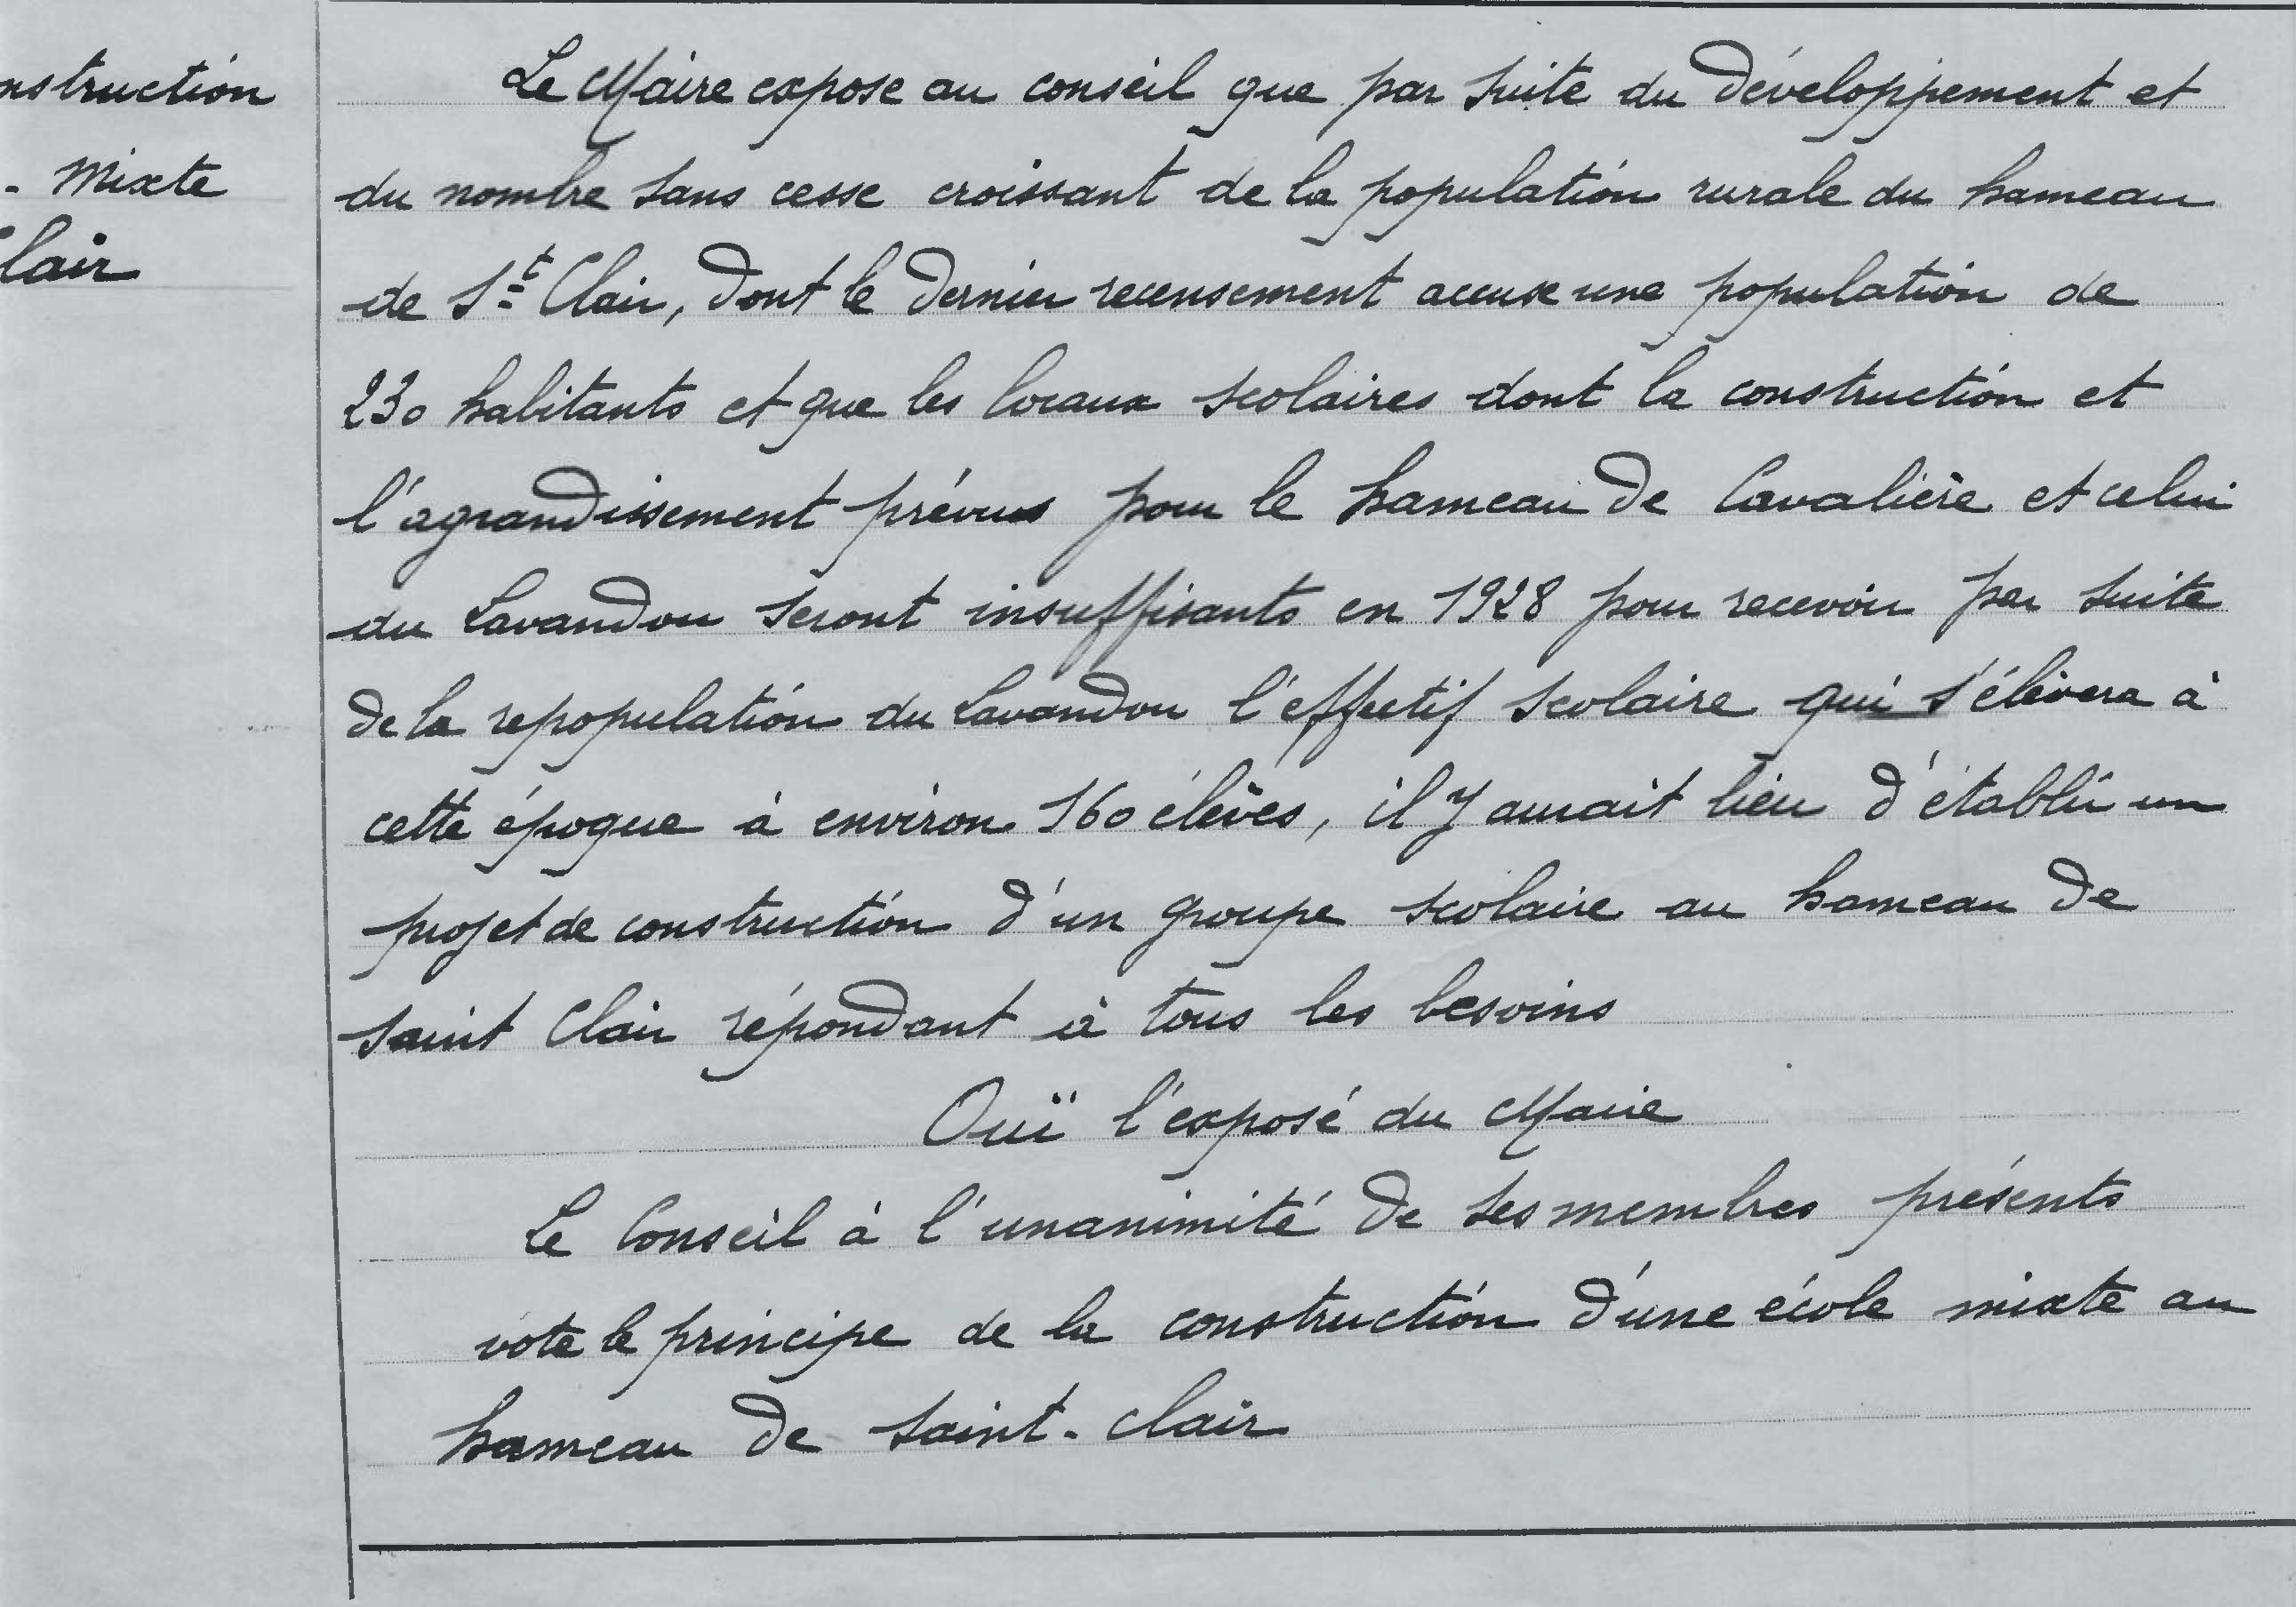 nstruction
- Mixte
Clair
Le Maire expose au conseil que par suite du développement et
du nombre sans cesse croissant de la population rurale du hameau
de St Clair, dont le dernier recensement accuse une population de
230 habitants et que les locaux scolaires dont la construction et
l'agrandissement prévus pour le hameau de Cavalière et celui
du Lavandou seront insuffisants en 1928 pour recevoir par suite
de la repopulation du Lavandou l'effectif scolaire qui s'élèvera à
cette époque à environ 160 élèves, il y aurait lieu d'établir un
projet de construction d'un groupe scolaire au hameau de
Saint Clair répondant à tous les besoins
Ouï l'exposé du Maire
Le Conseil à l'unanimité de ses membres présents
vote le principe de la construction d'une école mixte au
hameau de Saint-Clair